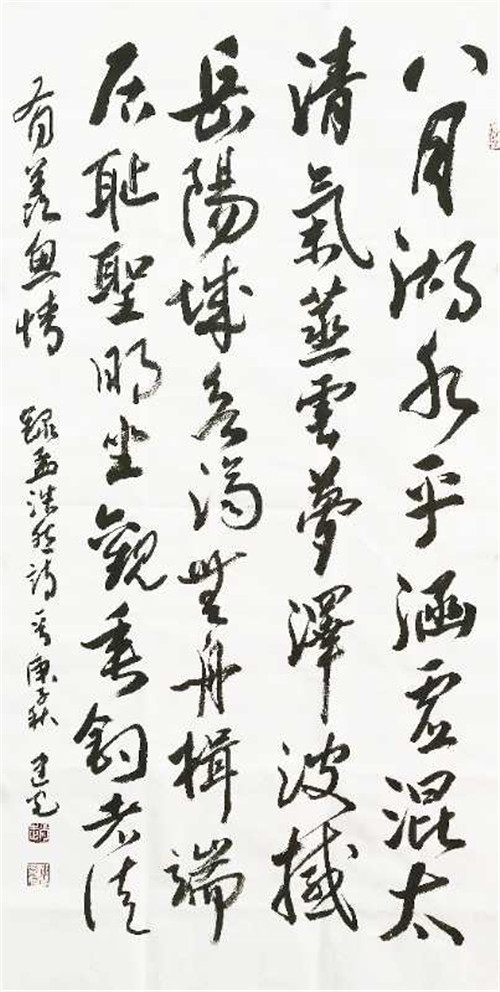 八月湖水平涵虛混太
清氣蒸雲夢澤波撼
岳陽城欲濟無舟楫端
居耻聖明坐觀垂釣者徒
有羨魚情 錄孟浩然詩 庚子秋